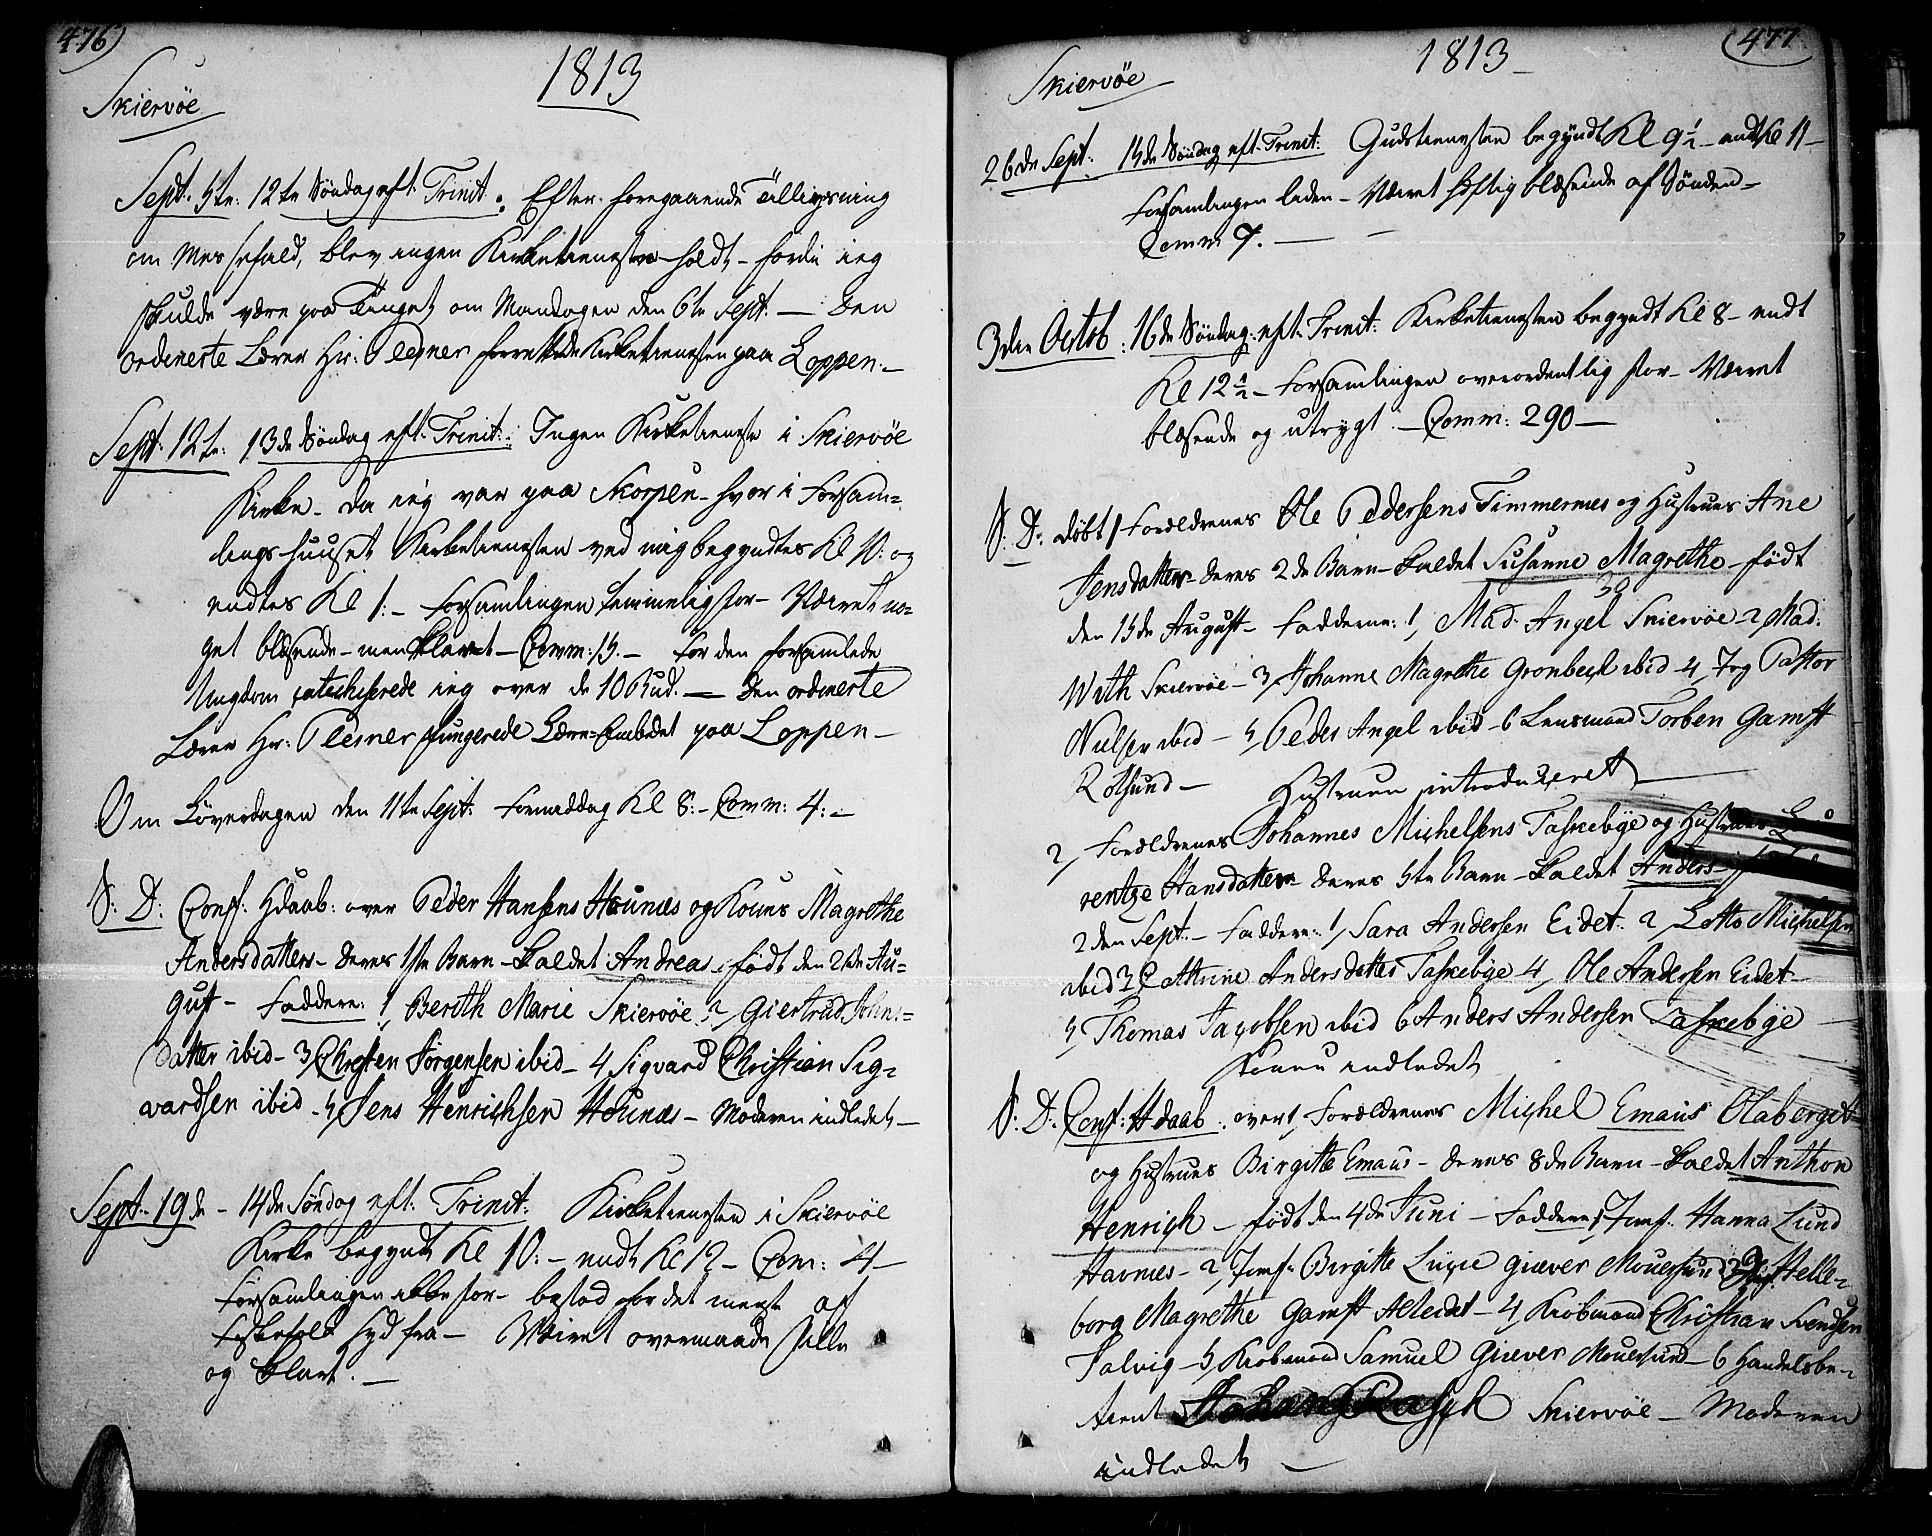 476)
1813
Skiervöe
Sept: 5te: 12te Söndag eft: Trinit: Efter foregaaende Tillysning
om Messefald, blev ingen Kirketieneste holdt – fordi ieg
skulde være paa Tinget om Mandagen den 6te Sept: – Den
ordinerte Lærer Hr: Plesner forrettede Kirketienesten paa Loppen –
Sept: 12te: 13de Söndag eft: Trinit: Ingen Kirketieneste i Skiervöe
Kirke – da ieg var paa Skorpen – hvor i Forsam=
lings-huuset Kirketienesten ved mig begyndtes Kl 10: og
endtes Kl 1: – Forsamlingen temmelig stor – Væiret no=
get blæsende – men klart – Comm: 15. – For den forsamlede
Ungdom catechiserede ieg over de 10 Bud. – Den ordinerte
Lærer Hr: Plesner fungerede Lærer-Embedet paa Loppen –
Om Löverdagen den 11te Sept: Formiddag Kl 8: – Comm: 4: –
S: D: Conf: Hdaab: over Peder Hansens Hounæs og Kones Magrethe
Andersdatters – deres 1ste Barn – kaldet Andrea – födt den 26de Au=
gust – Faddere: 1, Berith Marie Skiervöe 2, Giertrud Johns=
datter ibid – 3, Christen Jörgensen ibid – 4, Sigvard Christian Sig=
vardsen ibid – 5, Jens Henrichsen Hounæs – Moderen indledet –
Sept: 19de – 14de Söndag eft: Trinit: Kirketienesten i Skiervöe
Kirke begyndt Kl 10: – endt Kl 12 – Com: 4 –
Forsamlingen ikke stor – bestod for det meste af
Fiskefolk Syd fra – Væiret overmaade stille
og klart. –
(477
1813
Skiervöe
26de Sept: 15de Söndag eft: Trinit: Gudstienesten begyndt Kl 9½ – endt Kl 11 –
Forsamlingen liden – Væiret hæftig blæsende af Sönden –
Comm 7. –
3die Octob: 16de Söndag: eft: Trinit: Kirketienesten begyndt Kl 8 – endt
Kl 12½ – Forsamlingen overordentlig stor – Væiret
blæsende og utrygt – Comm: 290 –
S: D: döbt 1, Forældrenes Ole Pedersens Timmernes og Hustrues Ane
Jensdatters – deres 2de Barn – kaldet Susanne Magrethe – födt
den 15de August – Fadderne: 1, Mad. Angel Skiervöe – 2, Mad:
With Skiervöe – 3, Johanne Magrethe Gronbech ibid – 4, Jeg Pastor
Nielsen ibid – 5, Peder Angel ibid – 6 Lensmand Torben Gamst
Rotsund – Hustruen introduceret
2, Forældrenes Johannes Michelsens Taskebye og Hustrues Lo
rentze Hansdatters – deres 5te Barn – kaldet Anders – födt
2den Sept: – Faddere: 1, Sara Andersen Eidet: 2, Lotto Michelsen
ibid 3, Cathrine Andersdatter Taskebye 4, Ole Andersen Eidet –
5, Thomas Jacobsen ibid 6 Anders Andersen Taskebye –
Konen indledet
S: D: Conf: Hdaab: over 1, Forældrenes Michel Emaus Olaberget
og Hustrues Birgitte Emaus – deres 8de Barn – kaldet Anthon
Henrich – födt den 4de Juni – Faddere: 1, Jomf: Hanna Lund
Havnnæs – 2, Jomf: Birgitte Lucie Giæver Mouersund 3, Helle=
borg Magrethe Gamst Alleidet – 4, Kiöbmand Christian Svendsen
Talvig – 5 Kiöbmand Samuel Giæver Mouersund – 6 Handelsbe=
tient Johan Rasch Skiervöe – Moderen
indledet –